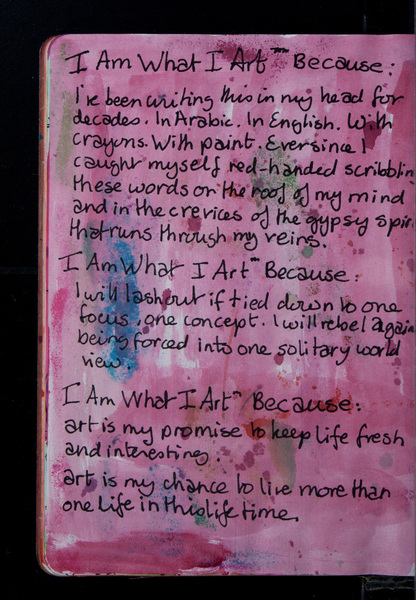 I Am What I Art ™ Because:
I've been writing this in my head for
decades. In Arabic. In English. With
crayons. With paint. Ever since I
caught myself red-handed scribblin
these words on the roof of my mind
and in the crevices of the gypsy spiri
that runs through my veins.
I Am What I Art ™ Because:
I will lash out if tied down to one
focus, one concept. I will rebel again
being forced into one solitary world
view.
I Am What I Art ™ Because:
art is my promise to keep life fresh
and interesting.
art is my chance to live more than
one life in this lifetime.